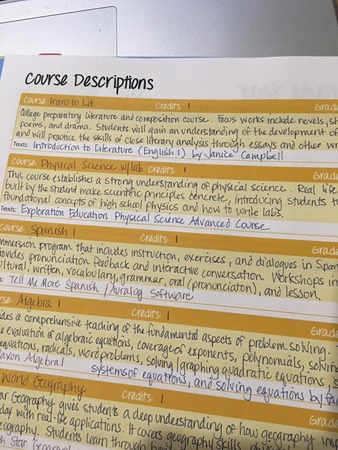 Course Descriptions
Course Intro to Lit Credits 1 Grade
College preparatory literature and composition course. Focus works include novels, sh
poems, and drama. Students will gain an understanding of the development of
and will practice the skills of close literary analysis through essays and other wr
Texts: Introduction to Literature (English 1) by Janice Campbell
Course Physical Science w/lab Credits 1 Grade
This course establishes a strong understanding of physical science. Real life
built by the student make scientific principles concrete, introducing students t
foundational concepts of high school physics and how to write labs.
Texts: Exploration Education Physical Science Advanced Course
Course Spanish 1 Credits 1 Grade
mmersion program that includes instruction, exercises, and dialogues in Span
ovides pronunciation feedback and interactive conversation. Workshops in
ultural, written, vocabulary, grammar, oral (pronunciaton), and lesson.
: Tell Me More Spanish / Auralog Software
urse Algebra 1 Credits 1 Grade
des a comprehensive teaching of the fundamental aspects of problem solving.
e evaluation of algebraic equations, coverage of exponents, polynomials, solvin
equations, radicals, word problems, solving/graphing quadratic equations, s
axon Algebra 1 systems of equations, and solving equations by fac
World Geography Credits 1 Grad
ar Geography gives students a deep understanding of how geography
day with real-life applications. It covers geography skills
eography. Students learn through
h Star Geogra